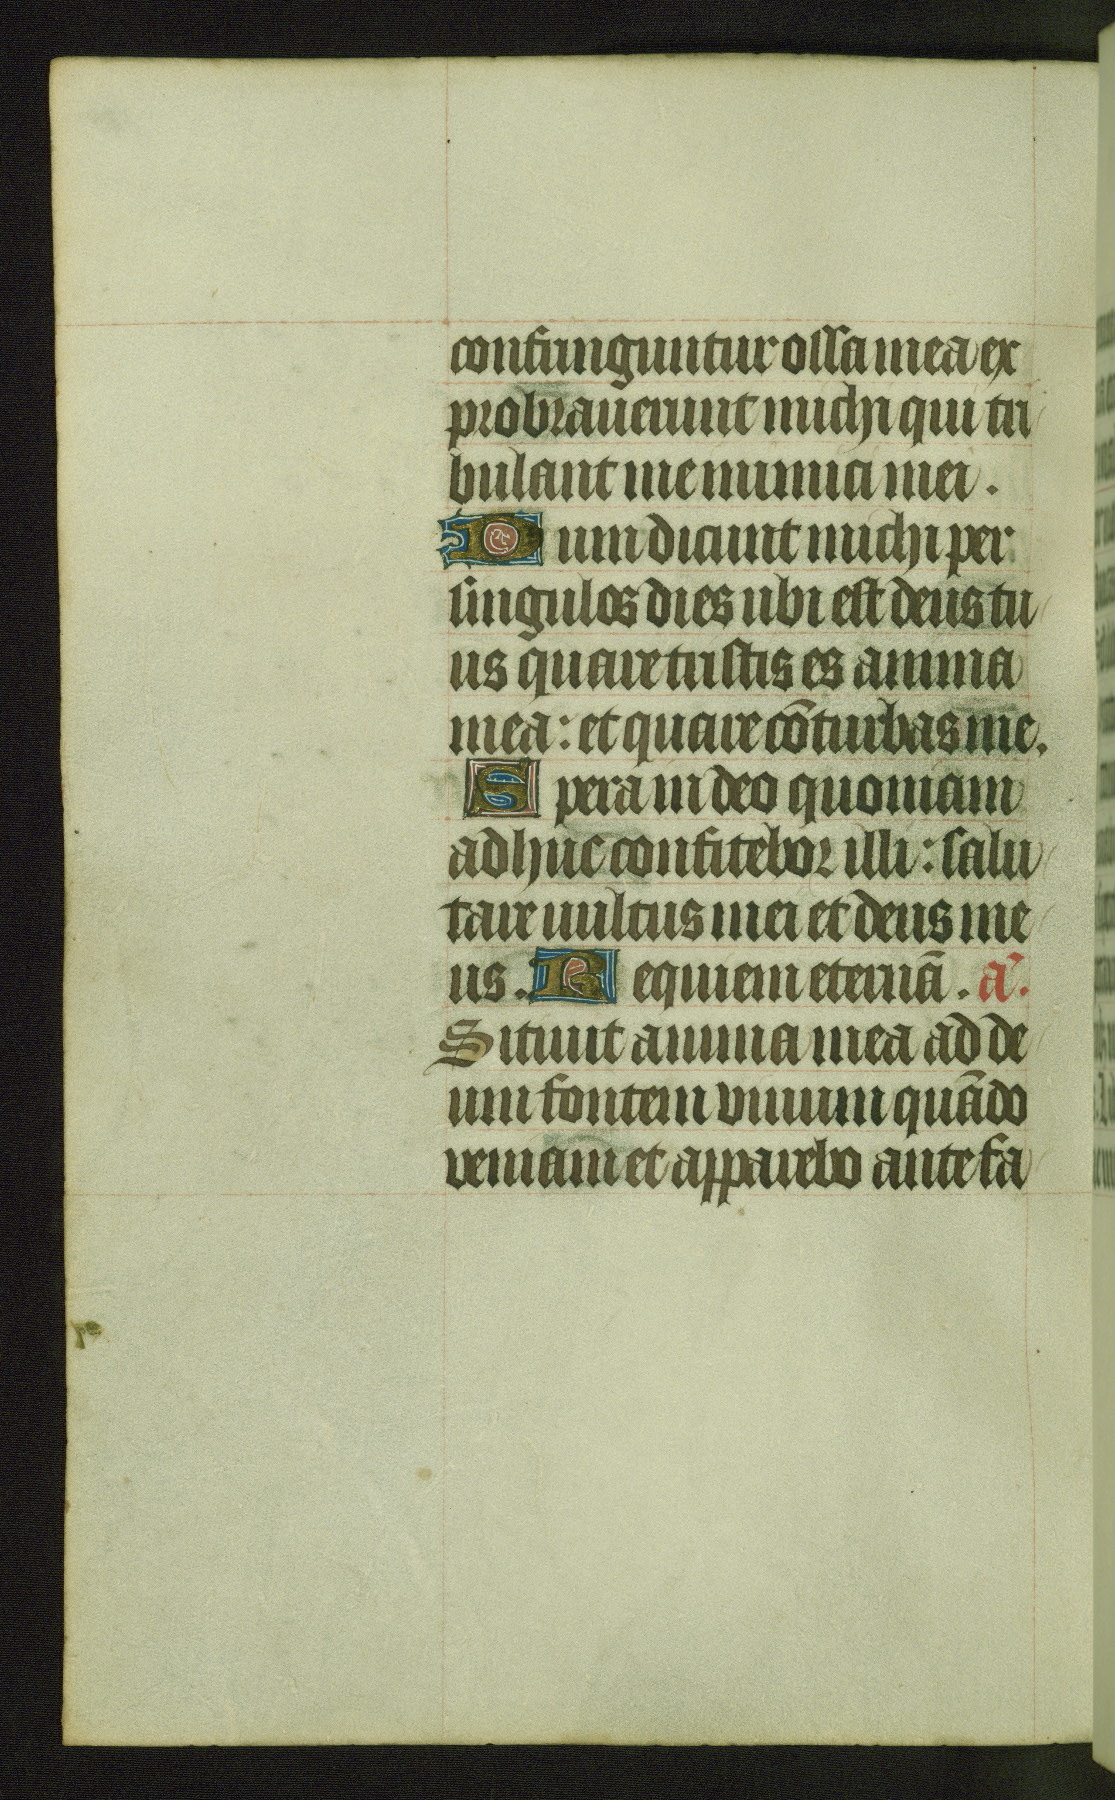 confringuntur ossa mea ex
probrauerunt michi qui tri
bulant me inimici mei.
Dum dicunt michi per
singulos dies ubi est deus tu
us quare tristis es anima
mea: et quare cōturbas me.
Spera in deo quoniam
adhuc confitebor illi: salu
tare uultus mei et deus me
us. Requiem eternā. a͛.
Sitiuit anima mea ad de
um fontem viuum quādo
veniam et apparebo ante fa